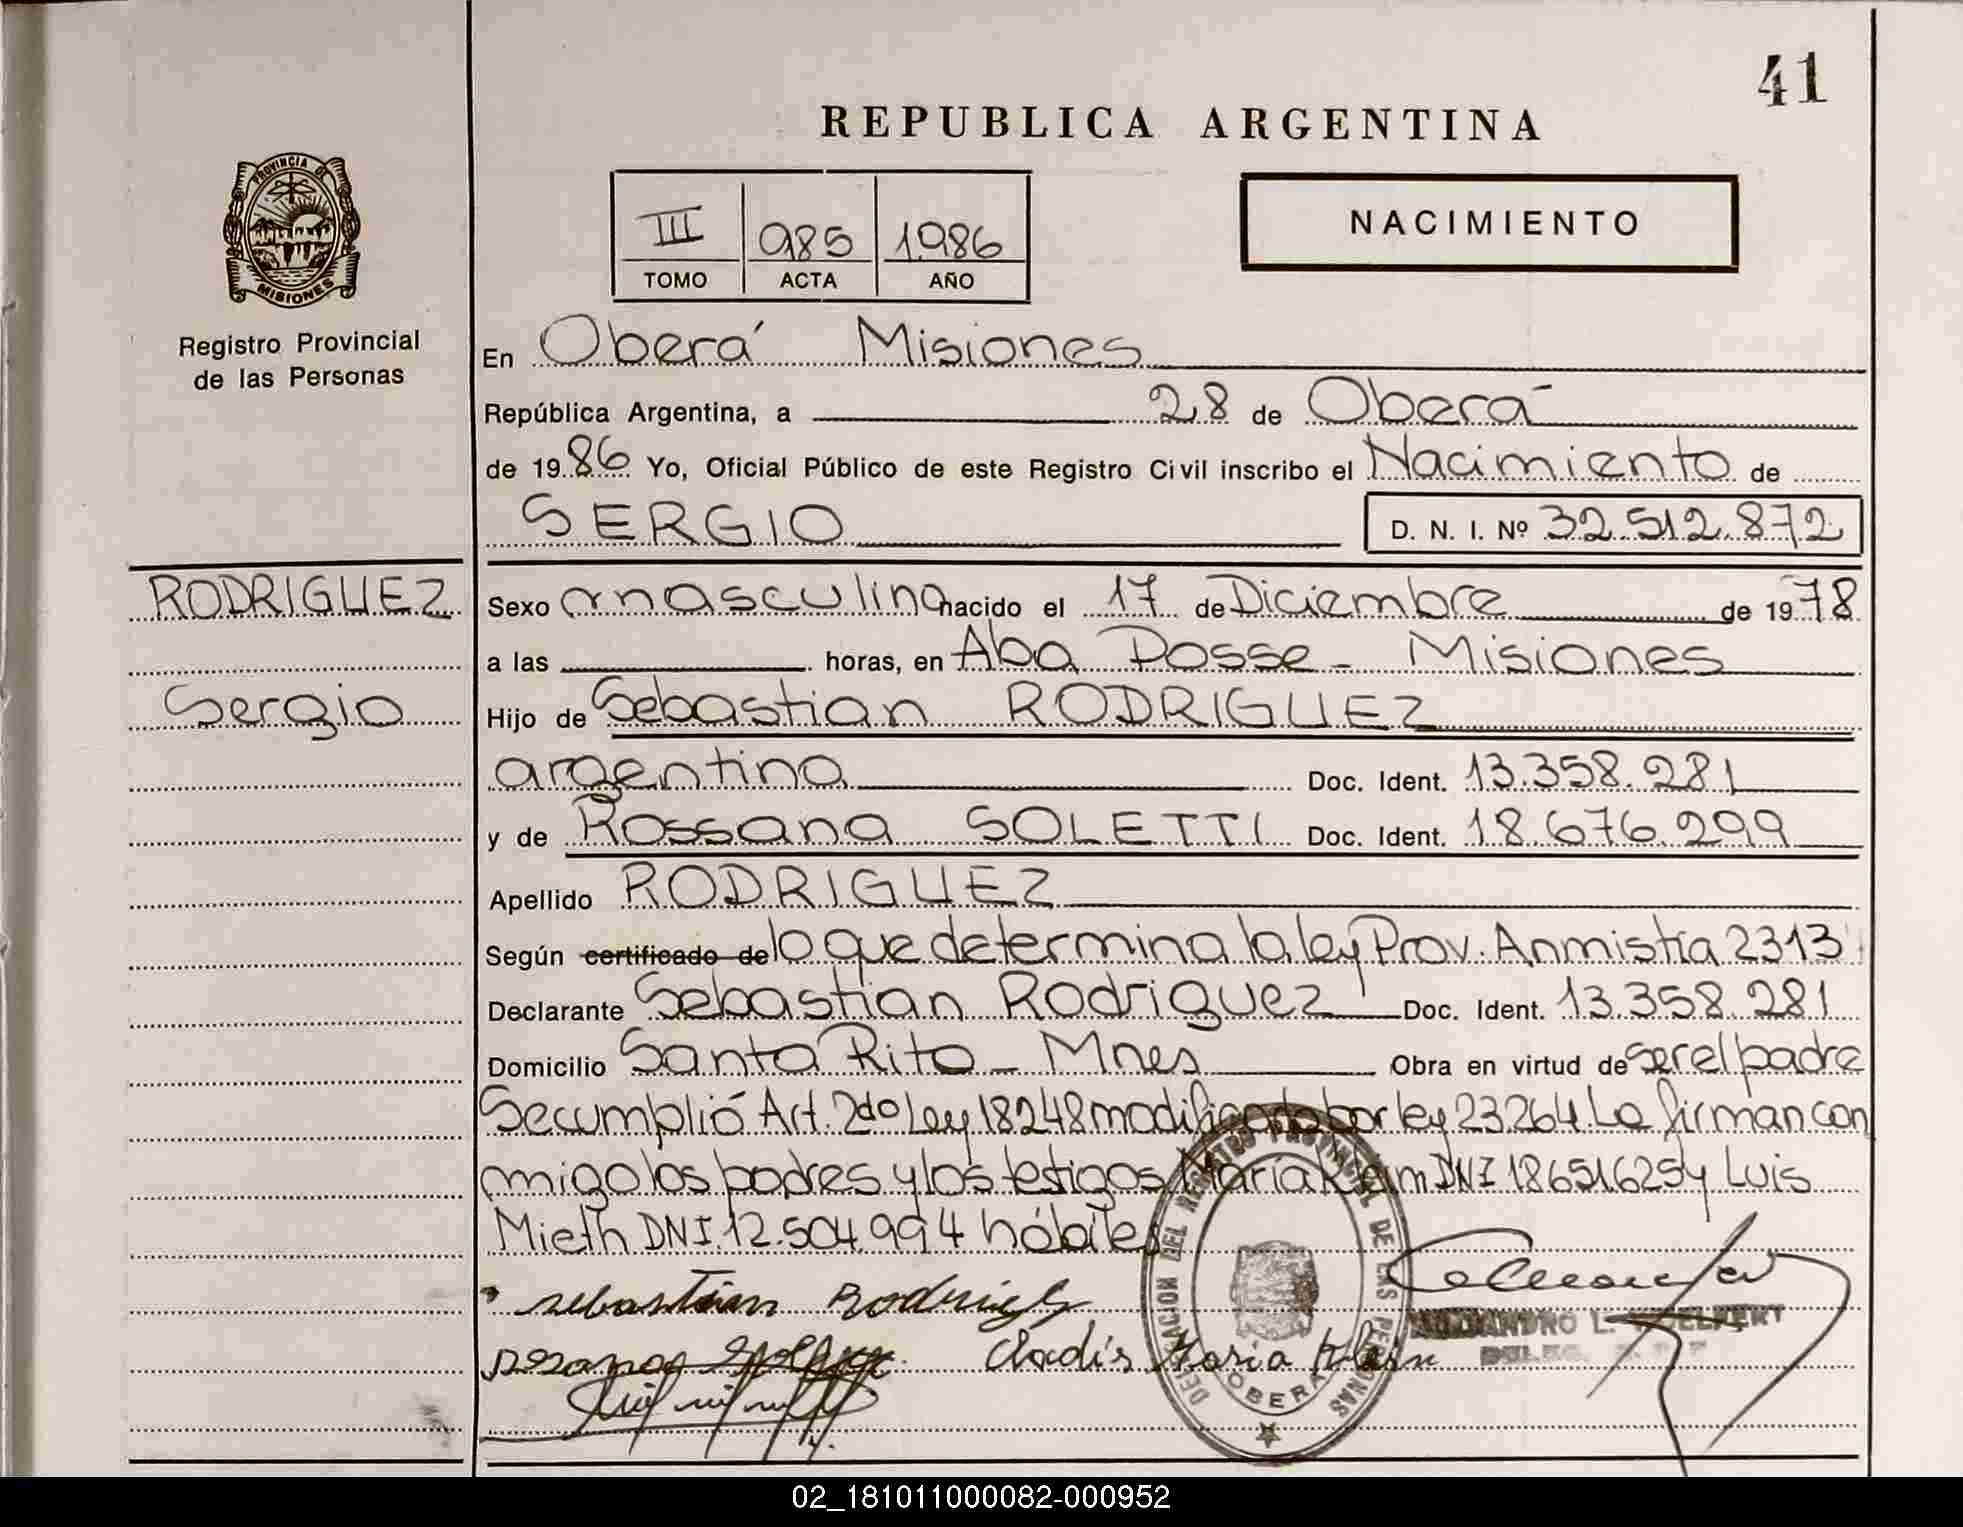 41
REPUBLICA ARGENTINA
PROVINCIA DE
MISIONES
Registro Provincial
de las Personas
III 985 1.986
TOMO ACTA AÑO
NACIMIENTO
En Oberá Misiones
República Argentina, a 28 de Oberá
de 19 86 Yo, Oficial Público de este Registro Civil inscribo el Nacimiento de
SERGIO D. N. I. Nº 32.512.872
RODRIGUEZ
Sergio
Sexo masculino nacido el 17 de Diciembre de 19 78
a las horas, en Aba Posse - Misiones
Hijo de Sebastian RODRIGUEZ
argentino Doc. Ident. 13.358.281
y de Rossana SOLETTI Doc. Ident. 18.676.299
Apellido RODRIGUEZ
Según certificado de lo que determina la ley Prov. Anmistia 2313
Declarante Sebastian Rodriguez Doc. Ident. 13.358.281
Domicilio Santa Rita - Mnes Obra en virtud de ser el padre
Se cumplió Art. 2do Ley 18248 modificado por ley 23264. Lo firman con
migo los padres y los testigos María DNI 18651625 y Luis
Mieth DNI 12.504.994 hábiles
Sebastian Rodriguez
Cladis Maria Klein
DELEGACION DEL REGISTRO PROVINCIAL DE LAS PERSONAS
OBERA
02_181011000082-000952